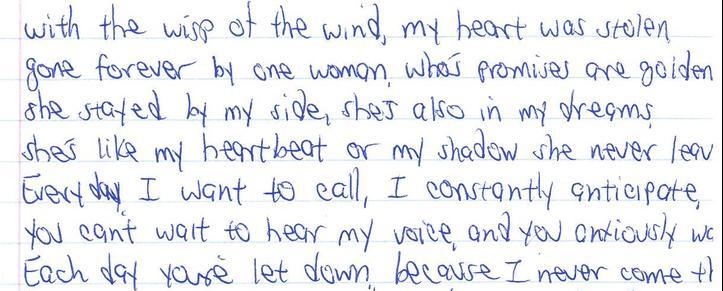 with the wisp of the wind, my heart was stolen,
gone forever by one woman, who's promises are golden
she stayed by my side, she's also in my dreams,
she's like my heartbeat or my shadow she never leav
Everyday, I want to call, I constantly anticipate,
you can't wait to hear my voice, and you anxiously wa
Each day you're let down, because I never come th